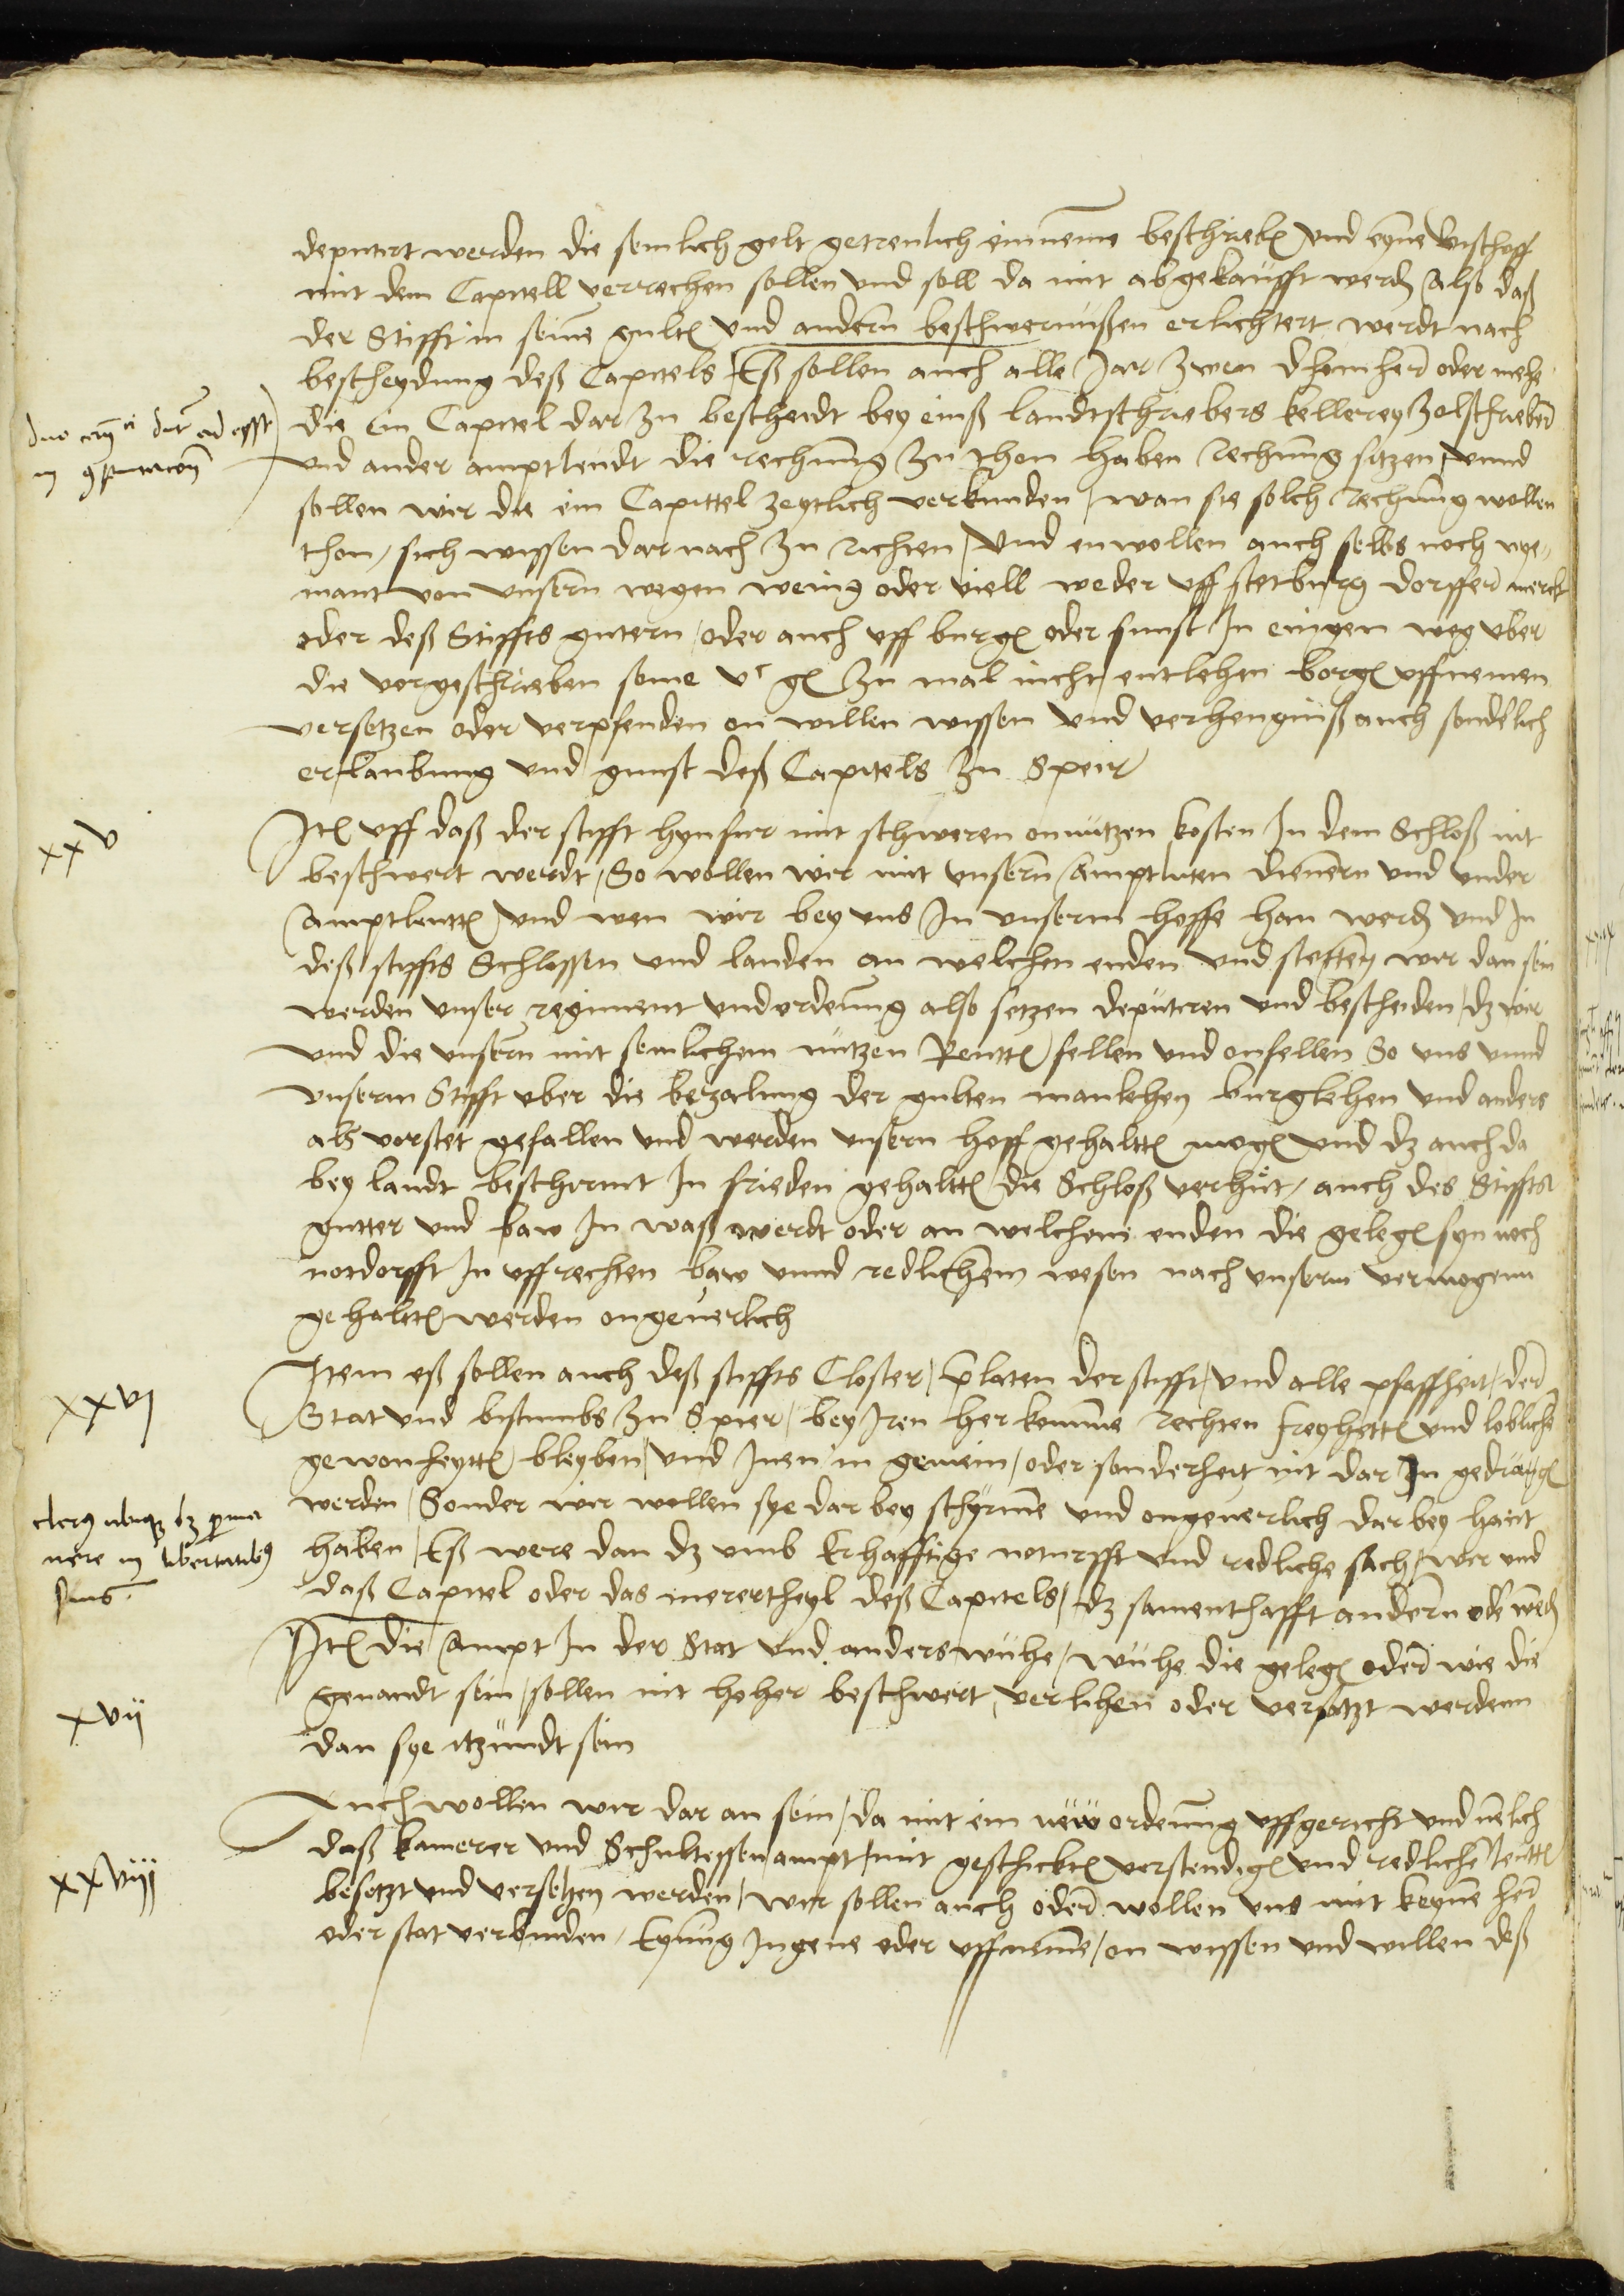 deputirt werden die semlich gelt getreulich einneme beschrieb und eyne bischoff
mit dem Capitell verrechen sollen und soll da mit abgekaufft werd also daß
der Stifft in seine gult und andern beschwernußen erlichtert werdt nach
bescheydung deß Capitels Eß sollen auch alle Jar zwen dhomhern oder mehe
die ein Capitel dar zu bescheidt bey einß landtschriebers kellerey zolschriebers
und ander amptleudt die rechnung zu thon haben Rechnung sitzen unnd
sollen wir die eim Capittel zeytlich verkunden wan sie solch Rechnung wollen
thon sich wissen dar nach zu richten Und enwollen auch selbs noch nye-
mant von unsern wegen wenig oder viell weder uff stet burg dorffer merckt
oder deß Stiffts gutern oder auch uff burg oder sunst In einigen weg uber
die vorgeschrieben some vc gl zu mal nicht entlehen borg uffnemen
versetzen oder verpfenden on willen wissen und verhengniß auch sonderlich
erlaubung und gunst deß Capitels zu Speir
xxv
Ite uff daß der stifft hynfur mit schweren onnützen kosten In dem Schloß nit
beschwert werdt So wollen wir mit unsern amptluten dienern und under
amptleutt und wen wir bey uns In unserm hoffe han werd und In
deß stiffts Schlossen und landen an welchen enden und stetten wir dan sein
werden unser regiment und ordenung also setzen deputiren und bescheiden dz wir
und die unsern mit semlichem nützen Rentt fellen und onfellen So uns unnd
unserm Stifft uber die bezalung der gulten manlehen burglehen und anders
als vorstet gefallen und werden unsern hoff gehaltt mog und dz auch da
bey landt beschirmt In frieden gehaltt die Schloß verhüt auch des Stiffts
gutter und baw In waß werdt oder an welchem enden die geleg syn noch
nordorfft In uffrechten baw unnd redlichem wesen nach unserm vermogenn
gehaltt werden ongeverlich
xxvj
Item eß sollen auch deß stiffts Closter prelaten der stifft und alle pfaffheit der
Stat und bistumbs zu Speier bey Iren herkomme rechten freyhett und lobliche
gewonheytt bleyben und Inen in gemein oder sonderheit nit dar In gedrang
werden Sonder wir wollen sye dar bey schyrme und ongeverlich dar bey hant
haben Eß were dan dz umb Erhafftige noturfft und redliche sach wir und
daß Capitel oder das merertheyl deß Capitels dz samenthafft andern ode werd
Ite die ampt In der Stat und anderswuhe wuhe die geleg oder wie die
xvij
genandt sein sollen nit hoher beschwert verlihen oder versetzt werdenn
dan sye itzundt sein
xxviij
Auch wollen wir dar an sein da mit ein neüw ordenung uffgericht und nelich
daß kamerer und Schultessen ampt mit geschickt verstendig und redliche leutt
besetzt und versehen werden wir sollen auch oder wollen uns mit keyne her
oder stat verbinden Eynung Ingene oder uffneme on wissen und willen deß